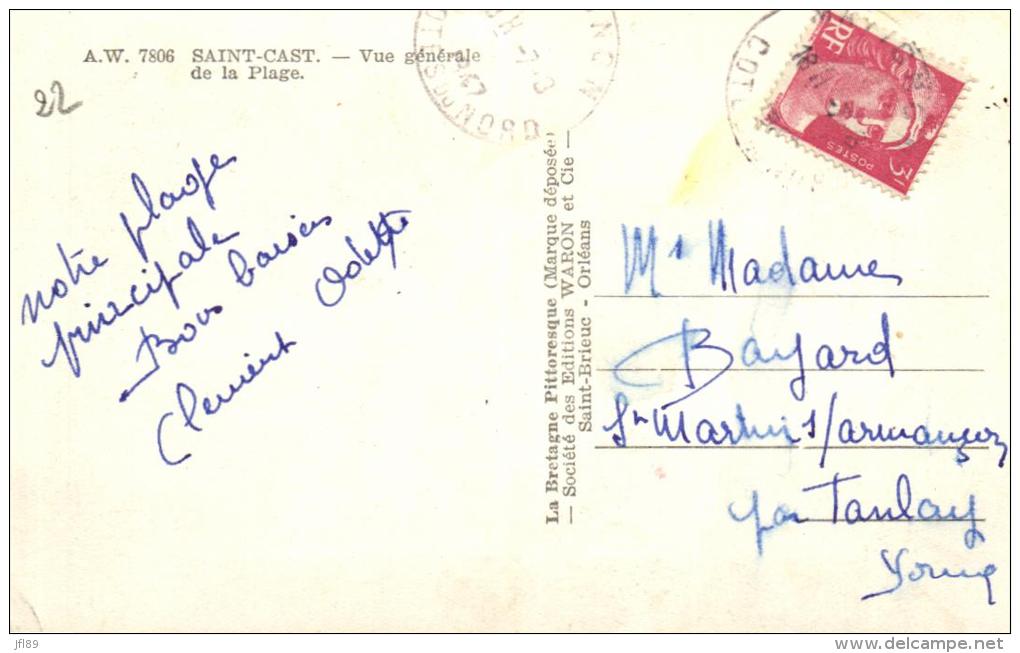 A.W. 7806 SAINT-CAST. — Vue générale
de la Plage.
22
notre plage
principale
Bons baisers
Clement Odette
La Bretagne Pittoresque (Marque déposée)
— Société des Editions WARON et Cie —
Saint-Brieuc - Orléans
RF
POSTES
3F
COTE
Mr Madame
Bayard
St Martin s/armançon
par Tanlay
Yonne
jfl89
delcampe.net